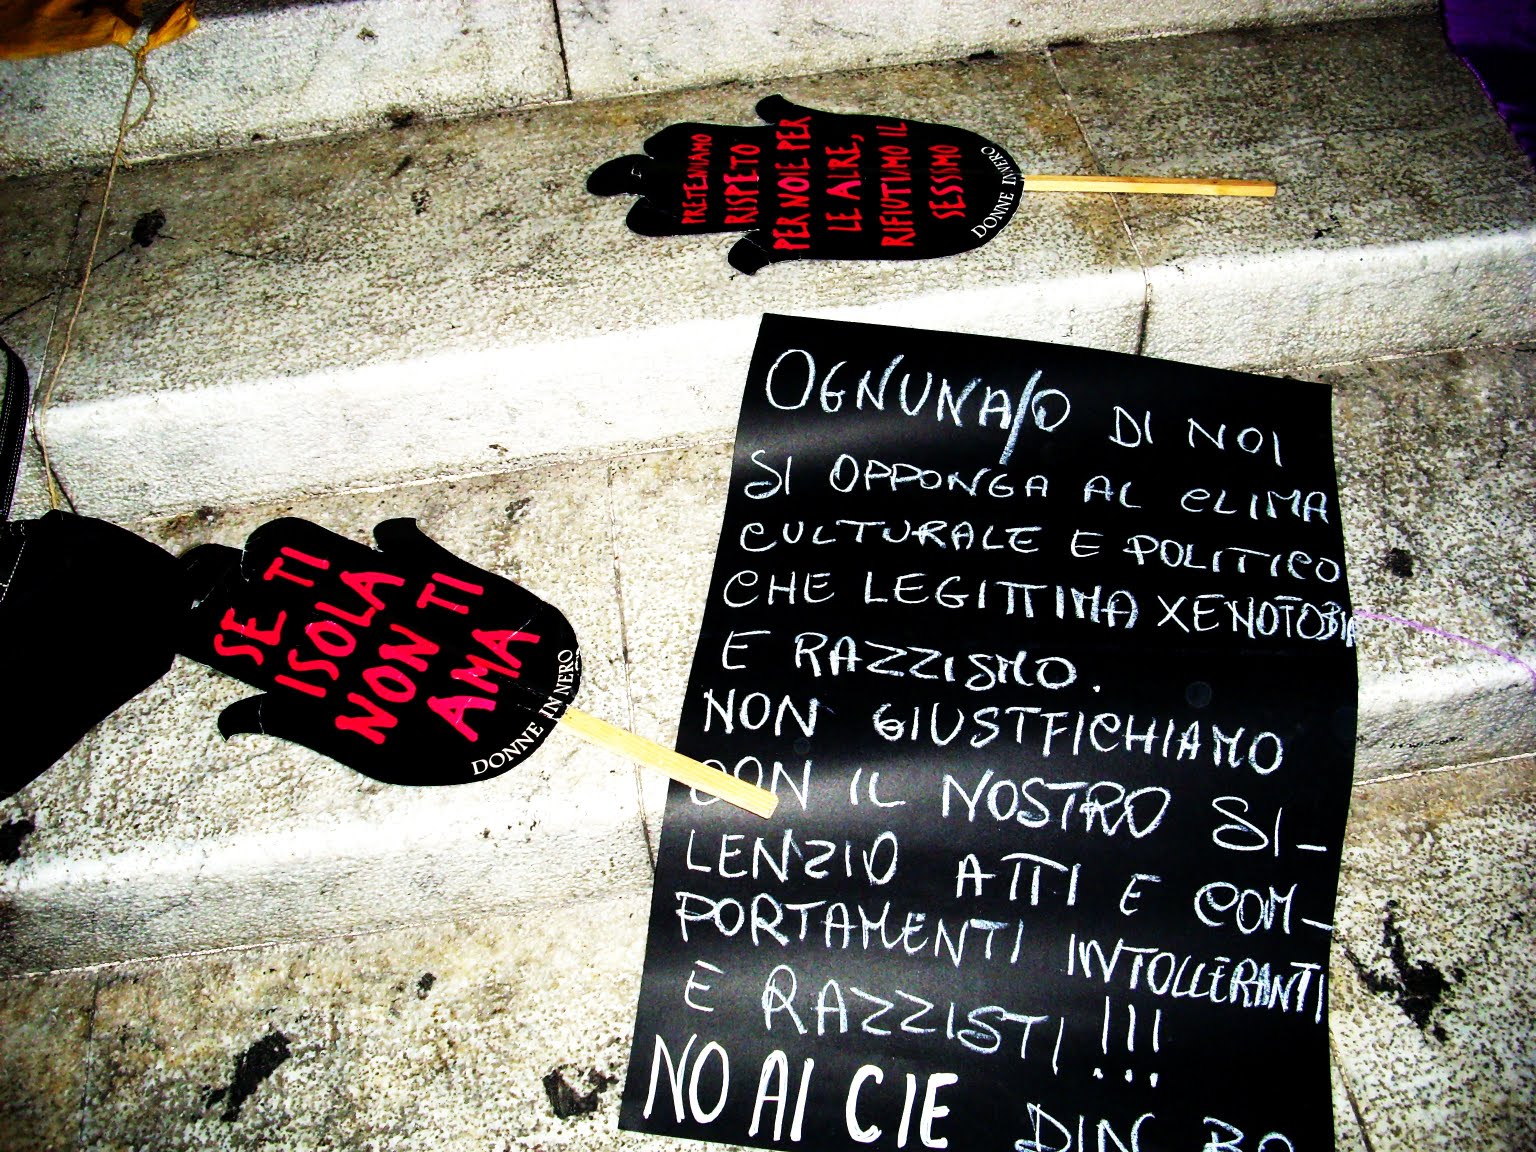 PRETENDIAMO
RISPETO
PER NOI E PER
LE ALRE,
RIFIUTIAMO IL
SESSISMO
DONNE IN NERO
SE TI
ISOLA
NON TI
AMA
DONNE IN NERO
OGNUNA/O DI NOI
SI OPPONGA AL CLIMA
CULTURALE E POLITICO
CHE LEGITTIMA XENOFOBIA
E RAZZISMO.
NON GIUSTFICHIAMO
CON IL NOSTRO SI-
LENZIO ATTI E COM-
PORTAMENTI INTOLLERANTI
E RAZZISTI!!!
NO AI CIE DIN BO